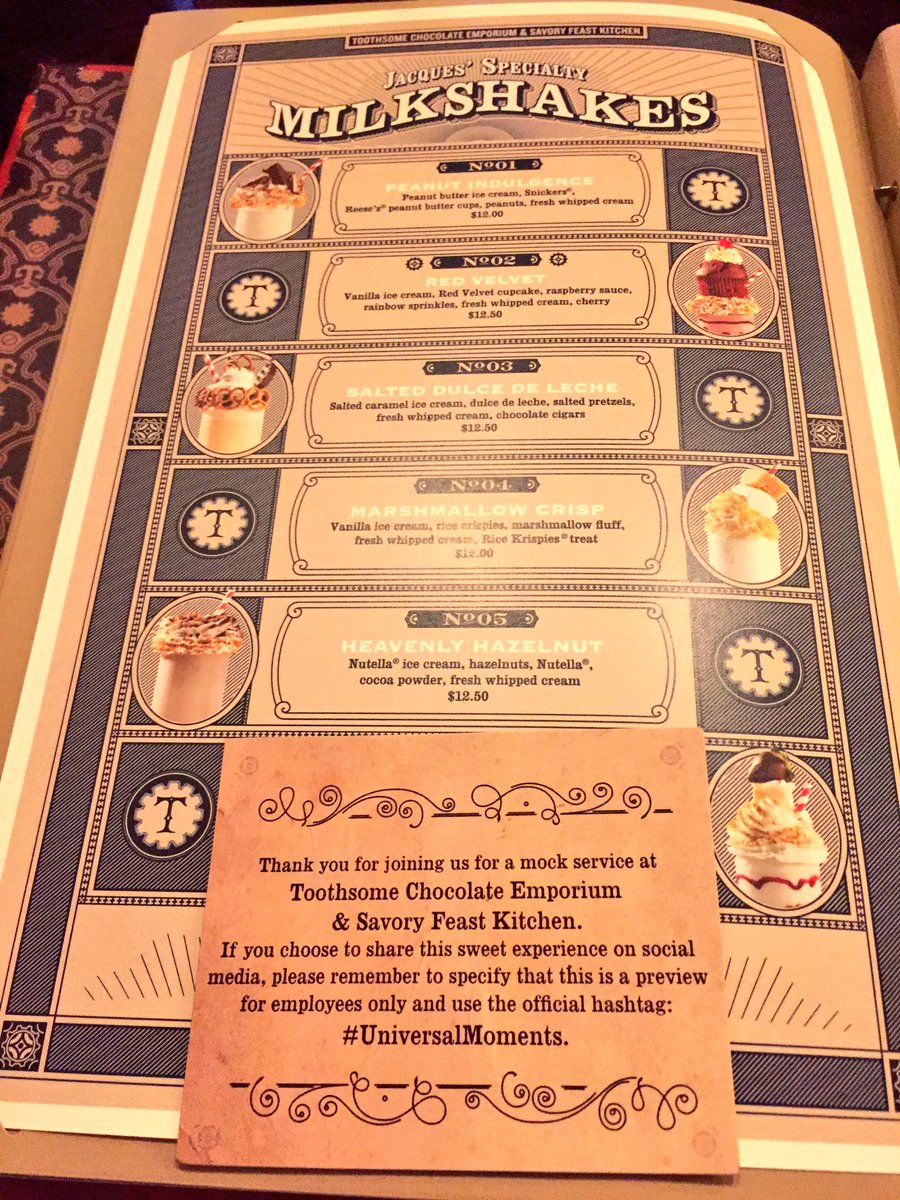 TOOTHSOME CHOCOLATE EMPORIUM & SAVORY FEAST KITCHEN
JACQUES' SPECIALTY
MILKSHAKES
Nº01
PEANUT INDULGENCE
Peanut butter ice cream, Snickers®,
Reese's® peanut butter cups, peanuts, fresh whipped cream
$12.00
T
Nº02
RED VELVET
Vanilla ice cream, Red Velvet cupcake, raspberry sauce,
rainbow sprinkles, fresh whipped cream, cherry
$12.50
T
Nº03
SALTED DULCE DE LECHE
Salted caramel ice cream, dulce de leche, salted pretzels,
fresh whipped cream, chocolate cigars
$12.50
T
Nº04
MARSHMALLOW CRISP
Vanilla ice cream, rice crispies, marshmallow fluff,
fresh whipped cream, Rice Krispies® treat
$12.00
T
Nº05
HEAVENLY HAZELNUT
Nutella® ice cream, hazelnuts, Nutella®,
cocoa powder, fresh whipped cream
$12.50
T
T
Thank you for joining us for a mock service at
Toothsome Chocolate Emporium
& Savory Feast Kitchen.
If you choose to share this sweet experience on social
media, please remember to specify that this is a preview
for employees only and use the official hashtag:
#UniversalMoments.